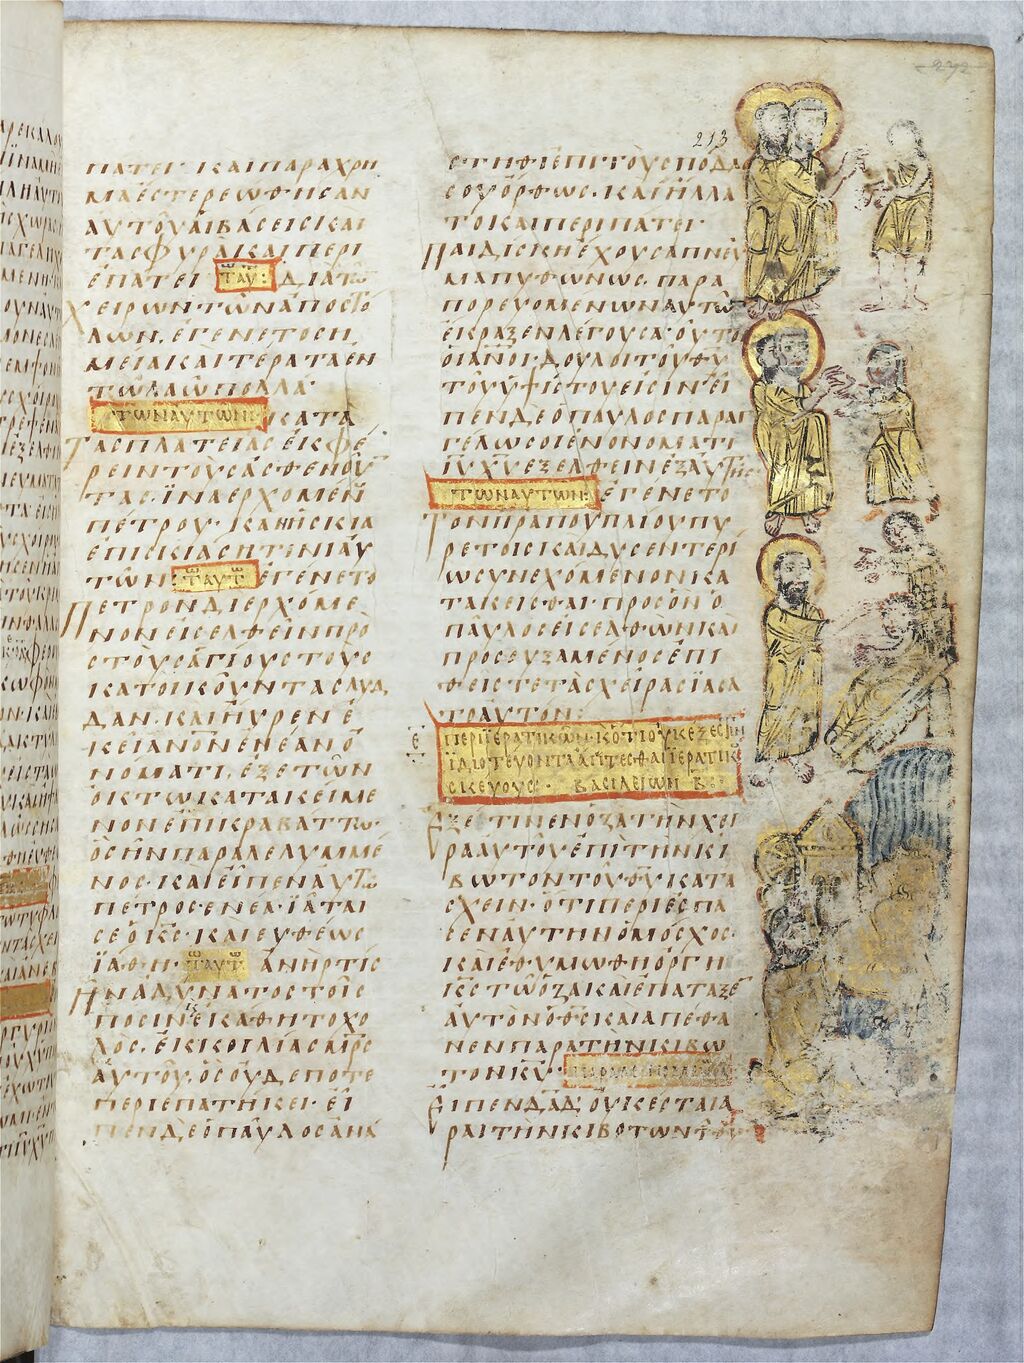 213
ΠΑΤΕΙ· ΚΑΙ ΠΑΡΑΧΡΗ
ΜΑ ΕΣΤΕΡΕΩΘΗΣΑΝ
ΑΥΤΟΥ ΑΙ ΒΑΣΕΙΣ ΚΑΙ
ΤΑ ΣΦΥΡΑ· ΚΑΙ ΠΕΡΙ
ΕΠΑΤΕΙ ΤΑΥ: ΔΙΑ ΤΩ
ΧΕΙΡΩΝ ΤΩΝ ΑΠΟΣΤΟ
ΛΩΝ, ΕΓΕΝΕΤΟ ΣΗ
ΜΕΙΑ ΚΑΙ ΤΕΡΑΤΑ ΕΝ
ΤΩ ΛΑΩ ΠΟΛΛΑ·
ΤΩΝ ΑΥΤΩΝ: ΚΑΤΑ
ΤΑΣ ΠΛΑΤΕΙΑΣ ΕΚΦΕ
ΡΕΙΝ ΤΟΥΣ ΑΣΘΕΝΟΥ
ΤΑΣ· ΪΝΑ ΕΡΧΟΜΕΝ
ΠΕΤΡΟΥ· ΚΑΝ Η ΣΚΙΑ
ΕΠΙΣΚΙΑΣΗ ΤΙΝΙ ΑΥ
ΤΩΝ: ΤΑΥΤ ΕΓΕΝΕΤΟ
ΠΕΤΡΟΝ ΔΙΕΡΧΟΜΕ
ΝΟΝ ΕΙΣΕΛΘΕΙΝ ΠΡΟ
Σ ΤΟΥΣ ΑΓΙΟΥΣ ΤΟΥΣ
ΚΑΤΟΙΚΟΥΝΤΑΣ ΛΥΔ
ΔΑΝ· ΚΑΙ ΗΥΡΕΝ Ε
ΚΕΙ ΑΝΟΝ ΕΝΕΑΝ Ο
ΝΟΜΑΤΙ, ΕΞ ΕΤΩΝ
ΟΚΤΩ ΚΑΤΑΚΕΙΜΕ
ΝΟΝ ΕΠΙ ΚΡΑΒΑΤΤΩ·
ΟΣ ΗΝ ΠΑΡΑΛΕΛΥΜΜΕ
ΝΟΣ· ΚΑΙ ΕΙΠΕΝ ΑΥΤΩ
ΠΕΤΡΟΣ· ΕΝΕΑ ΪΑΤΑΙ
ΣΕ Ο ΚΣ· ΚΑΙ ΕΥΘΕΩΣ
ΪΑΘΗ· ΤΑΥΤ ΑΝΗΡ ΤΙΣ
ΑΔΥΝΑΤΟΣ ΤΟΙΣ
ΠΟΣΙΝ ΕΚΑΘΗΤΟ ΧΟ
ΛΟΣ, ΕΚ ΚΟΙΛΙΑΣ ΜΡΣ
ΑΥΤΟΥ, ΟΣ ΟΥΔΕΠΟΤΕ
ΠΕΡΙΕΠΑΤΗΚΕΙ· ΕΙ
ΠΕΝ ΔΕ Ο ΠΑΥΛΟΣ ΑΝΑ
ΣΤΗΘΙ ΕΠΙ ΤΟΥΣ ΠΟΔΑ
Σ ΟΥ ΟΡΘΩΣ· ΚΑΙ ΗΛΛΑ
ΤΟ ΚΑΙ ΠΕΡΙΠΑΤΕΙ·
ΠΑΙΔΙΣΚΗ ΕΧΟΥΣΑ ΠΝΕΥ
ΜΑ ΠΥΘΩΝΩΣ, ΠΑΡΑ
ΠΟΡΕΥΟΜΕΝΩΝ ΑΥΤΩ
ΕΚΡΑΞΕΝ ΛΕΓΟΥΣΑ· ΟΥΤΟ
Ι ΟΙ ΑΝΟΙ· ΔΟΥΛΟΙ ΤΟΥ ΘΥ
ΤΟΥ ΥΨΙΣΤΟΥ ΕΙΣΙΝ· ΕΙ
ΠΕΝ ΔΕ Ο ΠΑΥΛΟΣ ΠΑΡΑΓ
ΓΕΛΩ ΣΟΙ ΕΝ ΟΝΟΜΑΤΙ
ΙΥ ΧΥ ΕΞΕΛΘΕΙΝ ΕΞ ΑΥΤΗΣ
ΤΩΝ ΑΥΤΩΝ: ΕΓΕΝΕΤΟ
ΤΟΝ ΠΡΑ ΠΟΥΠΛΙΟΥ ΠΥ
ΡΕΤΟΙΣ ΚΑΙ ΔΥΣΕΝΤΕΡΙ
Ω ΣΥΝΕΧΟΜΕΝΟΝ ΚΑ
ΤΑΚΕΙΣΘΑΙ· ΠΡΟΣ ΟΝ Ο
ΠΑΥΛΟΣ ΕΙΣΕΛΘΩΝ ΚΑΙ
ΠΡΟΣΕΥΞΑΜΕΝΟΣ ΕΠΙ
ΘΕΙΣ ΤΕ ΤΑΣ ΧΕΙΡΑΣ ΪΑΣΑ
ΤΟ ΑΥΤΟΝ:
Ε ΠΕΡΙ ΙΕΡΑΤΙΚΩΝ· Κ ΟΤΙ ΟΥΚ ΕΞΕΣΤΙΝ
ΙΔΙΟΤΕΥΟΝΤΑ ΑΠΤΕΣΘΑΙ ΙΕΡΑΤΙΚ
ΣΚΕΥΟΥΣ· ΒΑΣΙΛΕΙΩΝ Β:
ΕΞΕΤΙΝΕΝ ΟΖΑ ΤΗΝ ΧΕΙ
ΡΑ ΑΥΤΟΥ ΕΠΙ ΤΗΝ ΚΙ
ΒΩΤΟΝ ΤΟΥ ΘΥ ΚΑΤΑ
ΣΧΕΙΝ· ΟΤΙ ΠΕΡΙΕΣΠΑ
ΣΕΝ ΑΥΤΗΝ Ο ΜΟΣΧΟΣ·
ΚΑΙ ΕΘΥΜΩΘΗ ΟΡΓΗ
ΚΣ ΤΩ ΟΖΑ ΚΑΙ ΕΠΑΤΑΞΕ
ΑΥΤΟΝ Ο ΘΣ ΚΑΙ ΑΠΕΘΑ
ΝΕΝ ΠΑΡΑ ΤΗΝ ΚΙΒΩ
ΤΟΝ ΚΥ·
ΕΙΠΕΝ ΔΑΔ· ΟΥΚ ΕΣΤΑΙ Α
ΡΑΙ ΤΗΝ ΚΙΒΟΤΩΝ ΤΟΥ